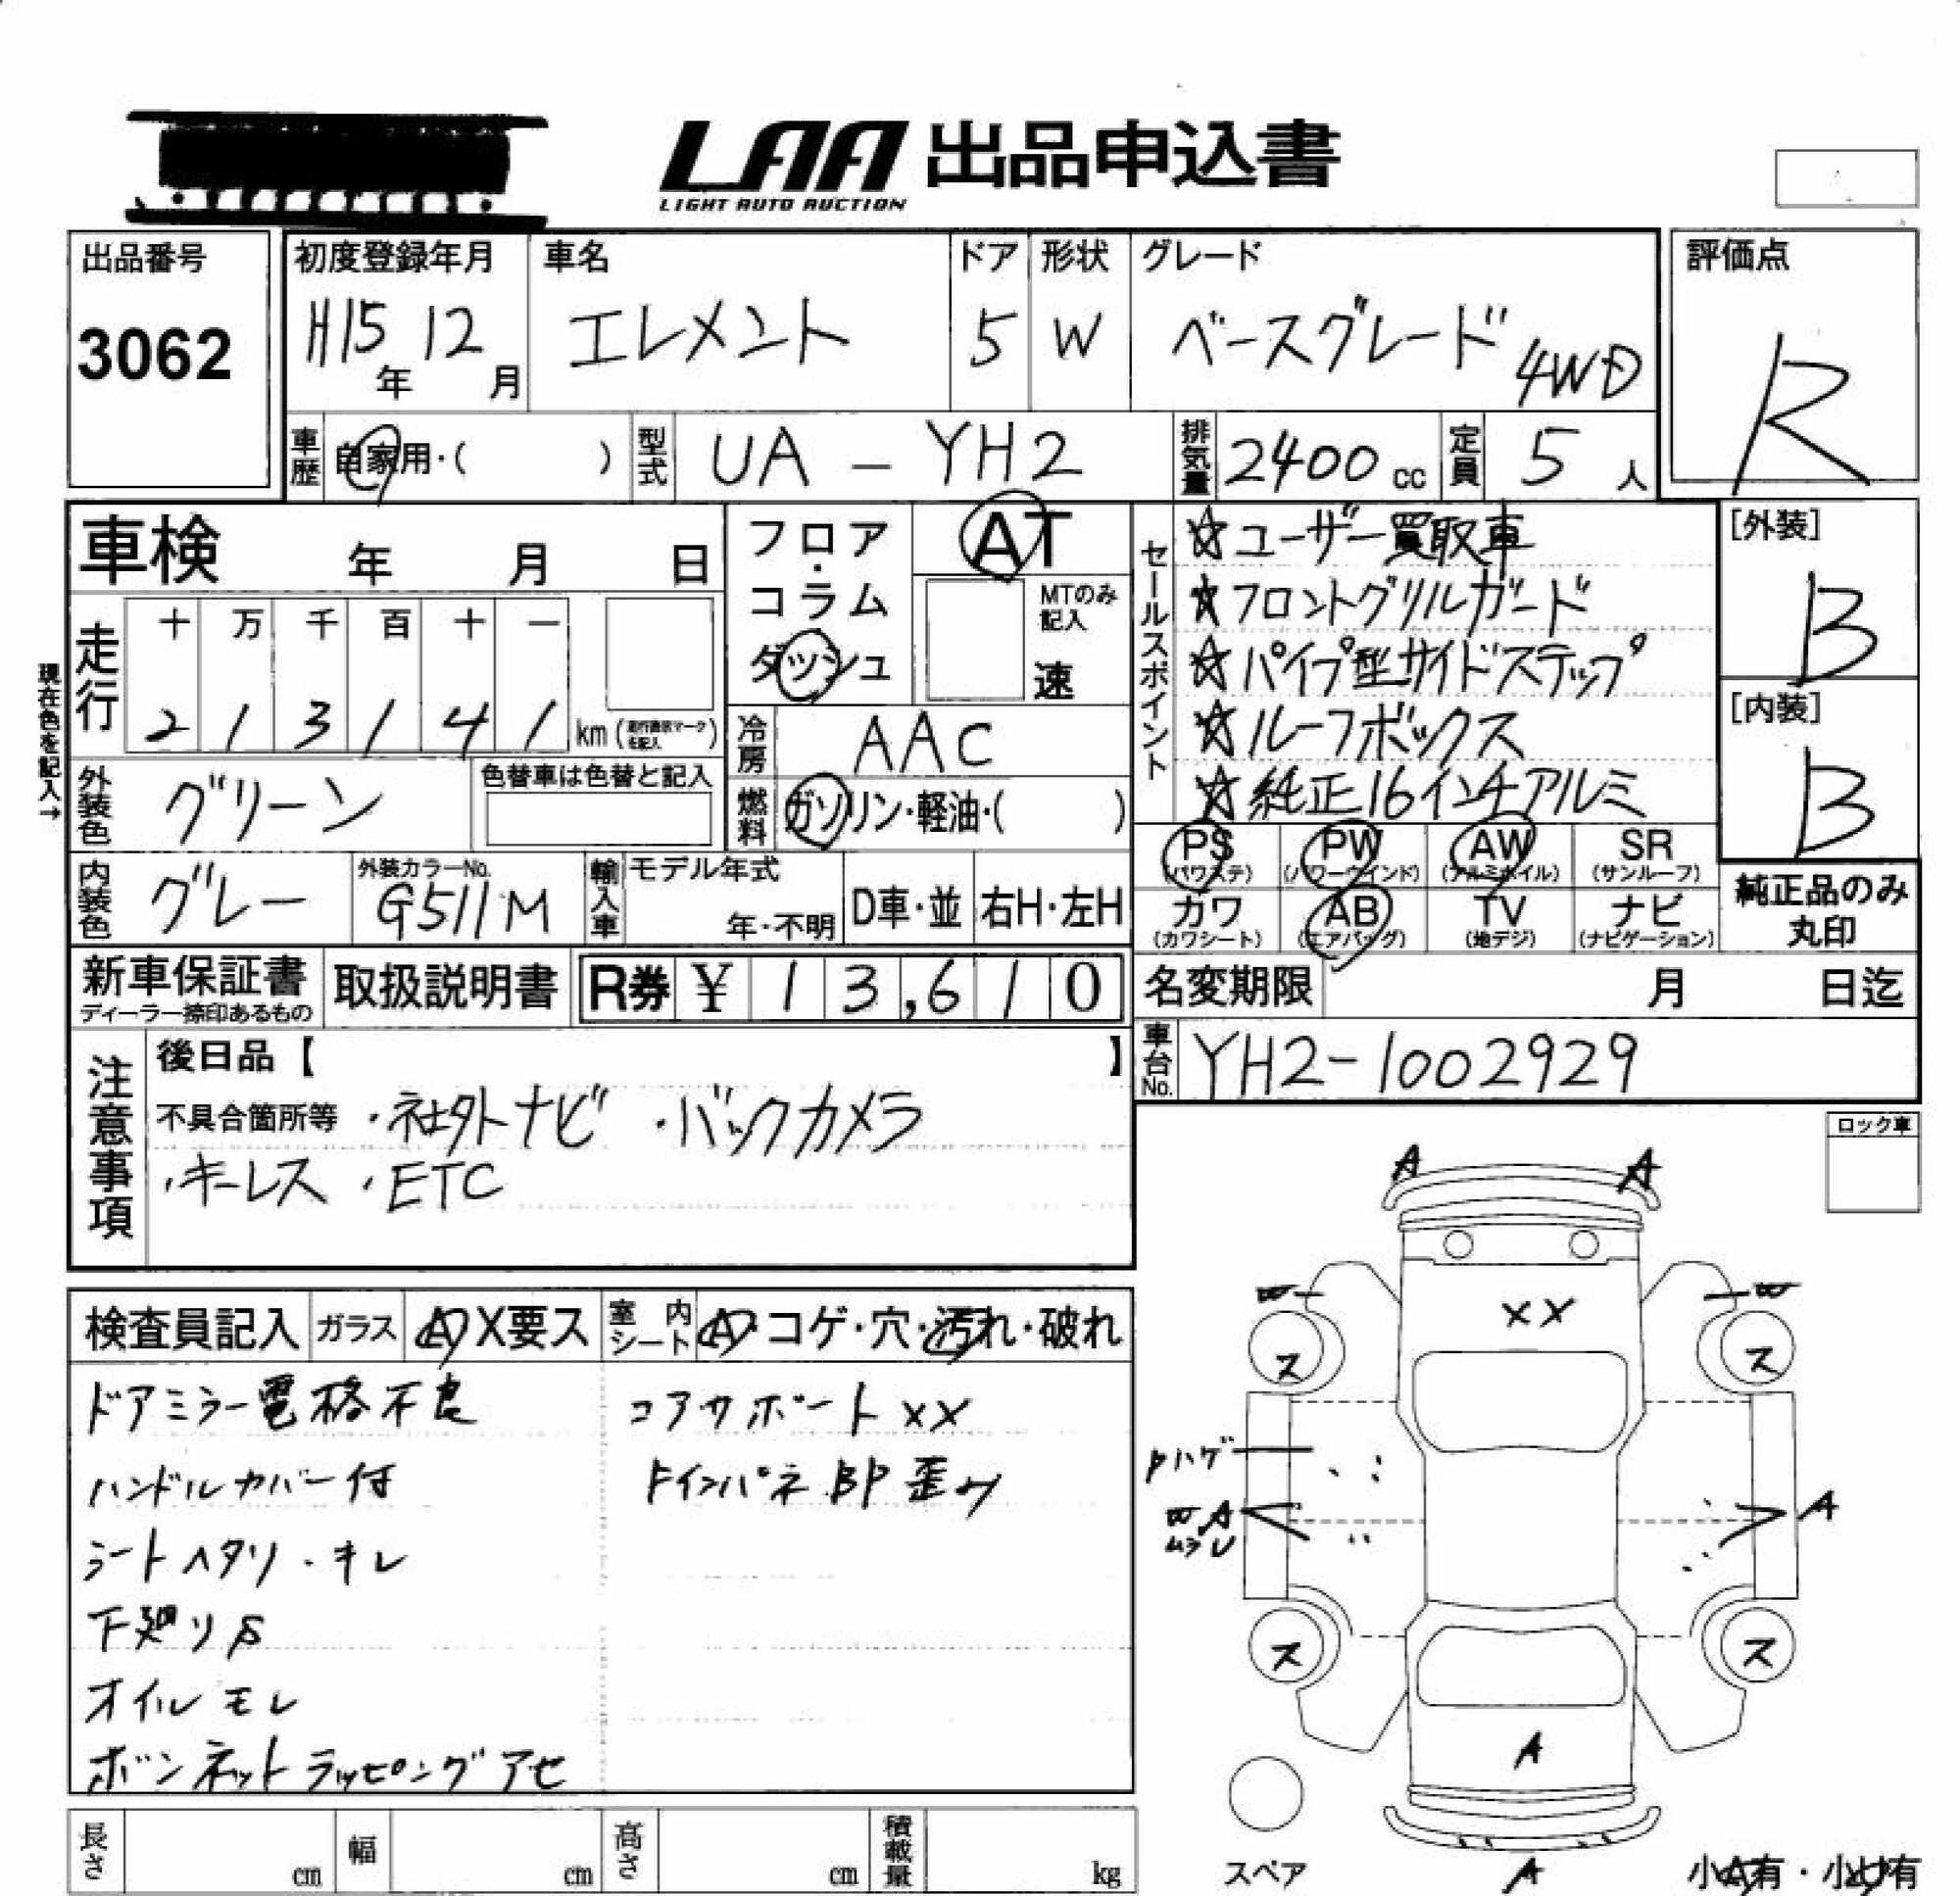 LAA 出品申込書
LIGHT AUTO AUCTION
出品番号
3062
初度登録年月
H15年 12月
車名
エレメント
ドア
5
形状
W
グレード
ベースグレード 4WD
評価点
R
車歴 自家用・( )
型式 UA-YH2
排気量 2400cc
定員 5人
車検 年 月 日
フロア・コラム
ダッシュ
AT
MTのみ記入
速
走行 十 万 千 百 十 一
2 1 3 1 4 1 km(走行表示マークを記入)
現在色を記入→
冷房 AAC
外装色 グリーン
色替車は色替と記入
燃料 ガソリン・軽油・( )
内装色 グレー
外装カラーNo.
G511M
輸入車 モデル年式
年・不明
D車・並
右H・左H
セールスポイント
☆ユーザー買取車
☆フロントグリルガード
☆パイプ型サイドステップ
☆ルーフボックス
☆純正16インチアルミ
[外装]
B
[内装]
B
PS PW AW SR
(パワステ) (パワーウインド) (アルミホイル) (サンルーフ)
カワ AB TV ナビ
(カワシート) (エアバッグ) (地デジ) (ナビゲーション)
純正品のみ
丸印
新車保証書
ディーラー捺印あるもの
取扱説明書
R券 ¥ 13,610
名変期限 月 日迄
車台No. YH2-1002929
注意事項
後日品【 】
不具合箇所等 ・社外ナビ ・バックカメラ
・キーレス ・ETC
ロック車
検査員記入 ガラス A X要ス
室内シート A・コゲ・穴・汚れ・破れ
ドアミラー電格不良
ハンドルカバー付
シートヘタリ・キレ
下廻りS
オイルモレ
ボンネットラッピングアセ
コアサポートXX
ドインパネ BP歪み
A A
W W
XX
ス ス
Pハゲ
W A
ムラ
A
ス ス
A
A
スペア
小A有・小U有
長さ cm
幅 cm
高さ cm
積載量 kg